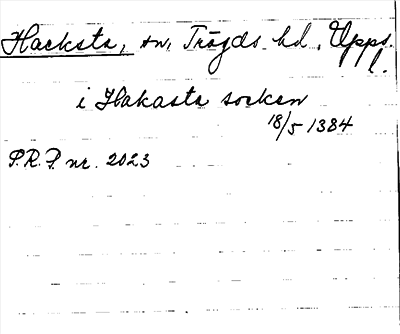 Hacksta, sn, Trögds hd, Upps. l.
i Hakasta socken
18/5 1384
P.R.P. nr. 2023